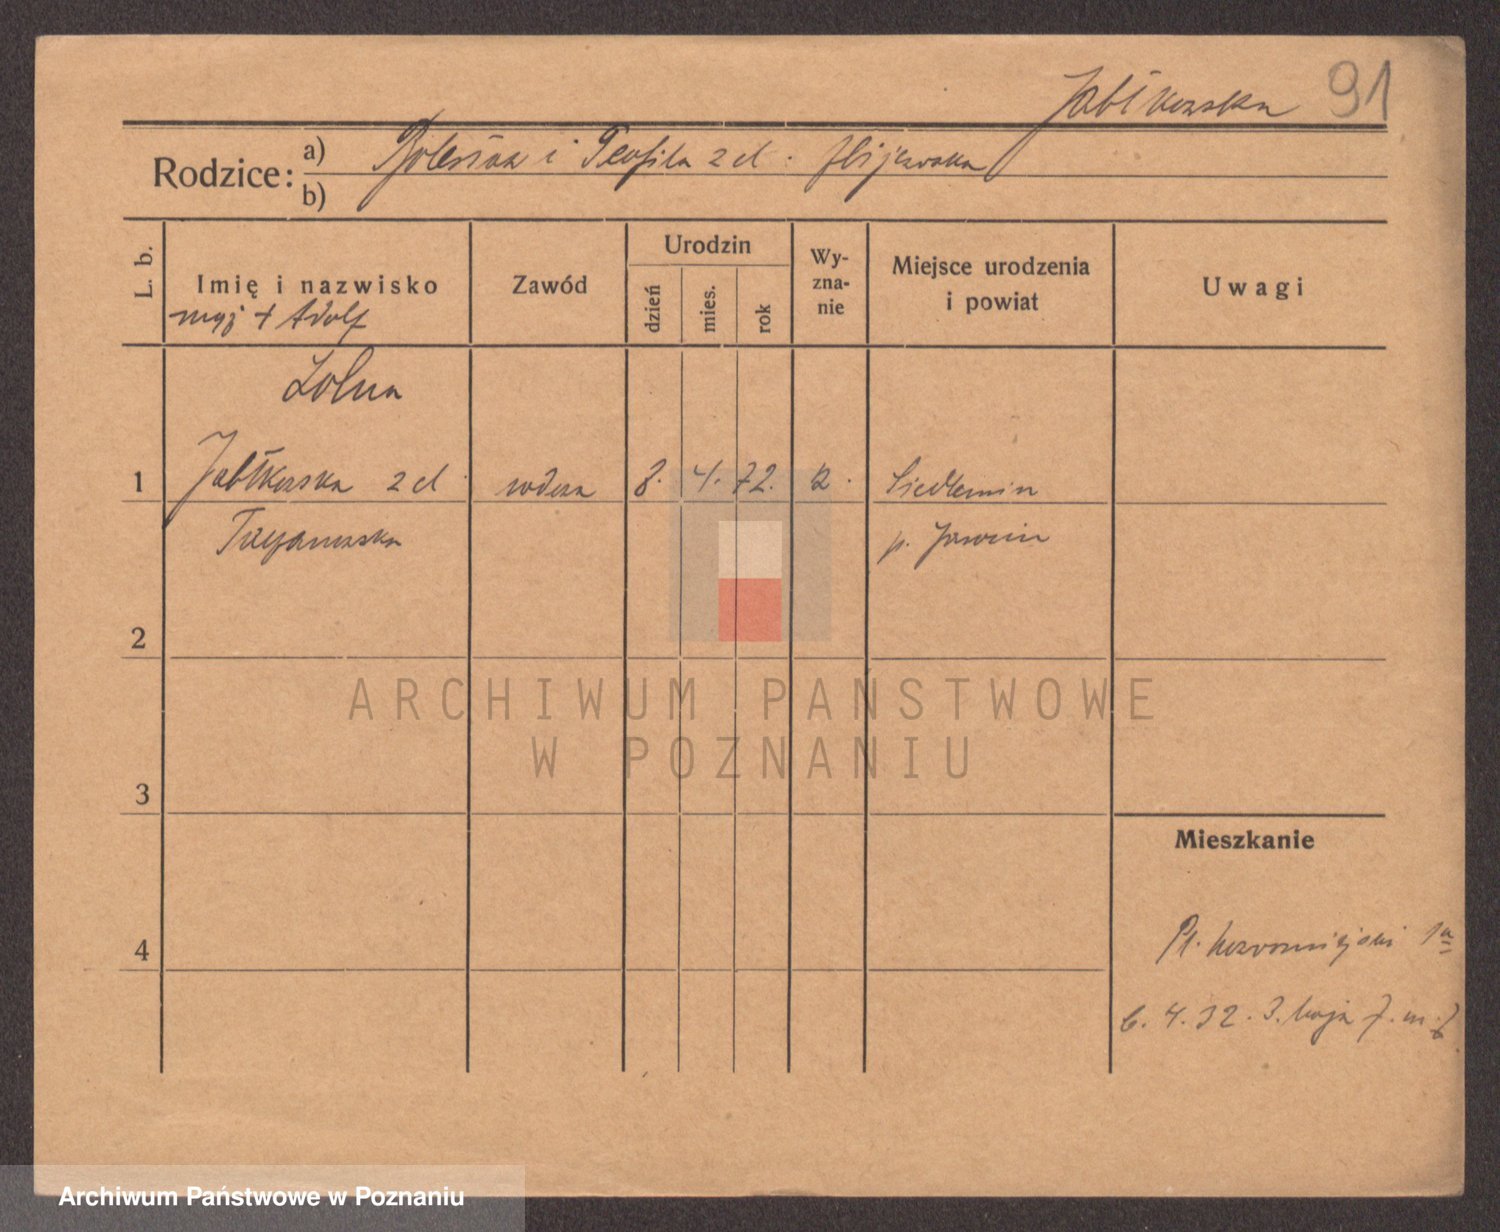 Jabłkowska 91
Rodzice: a) Bolesław i Teofila z d. Zbijewska
b)
L. b.
Imię i nazwisko
Zawód
Urodzin
dzień
mies.
rok
Wy-
zna-
nie
Miejsce urodzenia
i powiat
Uwagi
mąż + Adolf
1 Jabłkowska z d. wdowa 8. 4. 72. R.
p. Jarocin
2
3
4
Mieszkanie
Pl. Nowomiejski 1a
6. 4. 32. 3. Maja 7. m.
ARCHIWUM PAŃSTWOWE
W POZNANIU
Archiwum Państwowe w Poznaniu